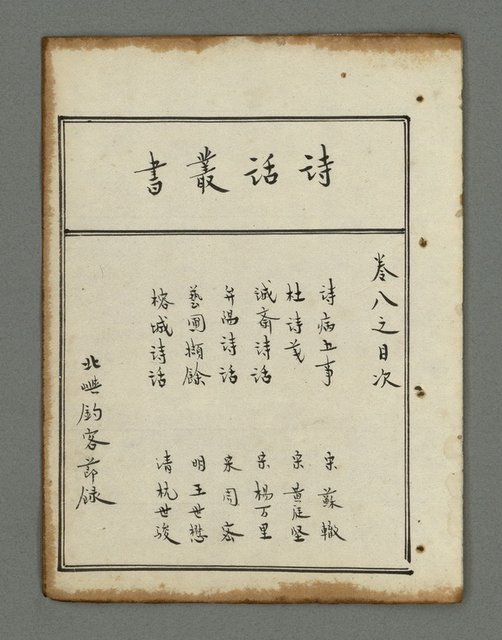 詩話叢書
卷八之目次
詩病五事 宋 蘇轍
杜詩箋 宋 黃庭堅
誠齋詩話 宋 楊万里
弁陽詩話 宋 周密
藝圃擷餘 明 王世懋
榕城詩話 清 杭世駿
北嶼釣客節録